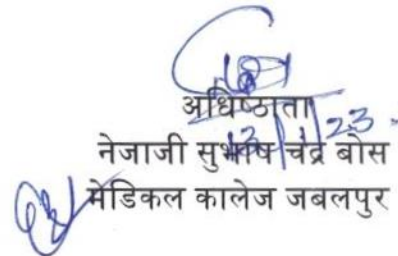 अधिष्ठाता
13/1/23
नेजाजी सुभाष चंद्र बोस
मेडिकल कालेज जबलपुर